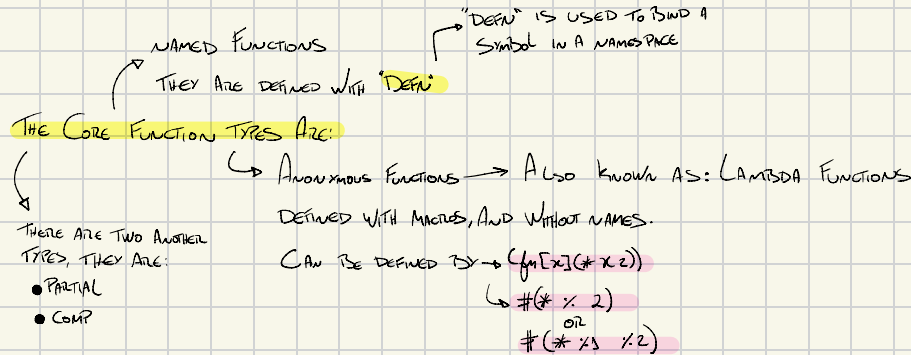 "DEFN" IS USED TO BIND A
SYMBOL IN A NAMESPACE
NAMED FUNCTIONS
THEY ARE DEFINED WITH "DEFN"
THE CORE FUNCTION TYPES ARE:
ANONYMOUS FUNCTIONS → ALSO KNOWN AS: LAMBDA FUNCTIONS
DEFINED WITH MACROS, AND WITHOUT NAMES.
CAN BE DEFINED BY → (fn[x](* x 2))
#(* % 2)
OR
#(* %1 %2)
THERE ARE TWO ANOTHER
TYPES, THEY ARE:
● PARTIAL
● COMP